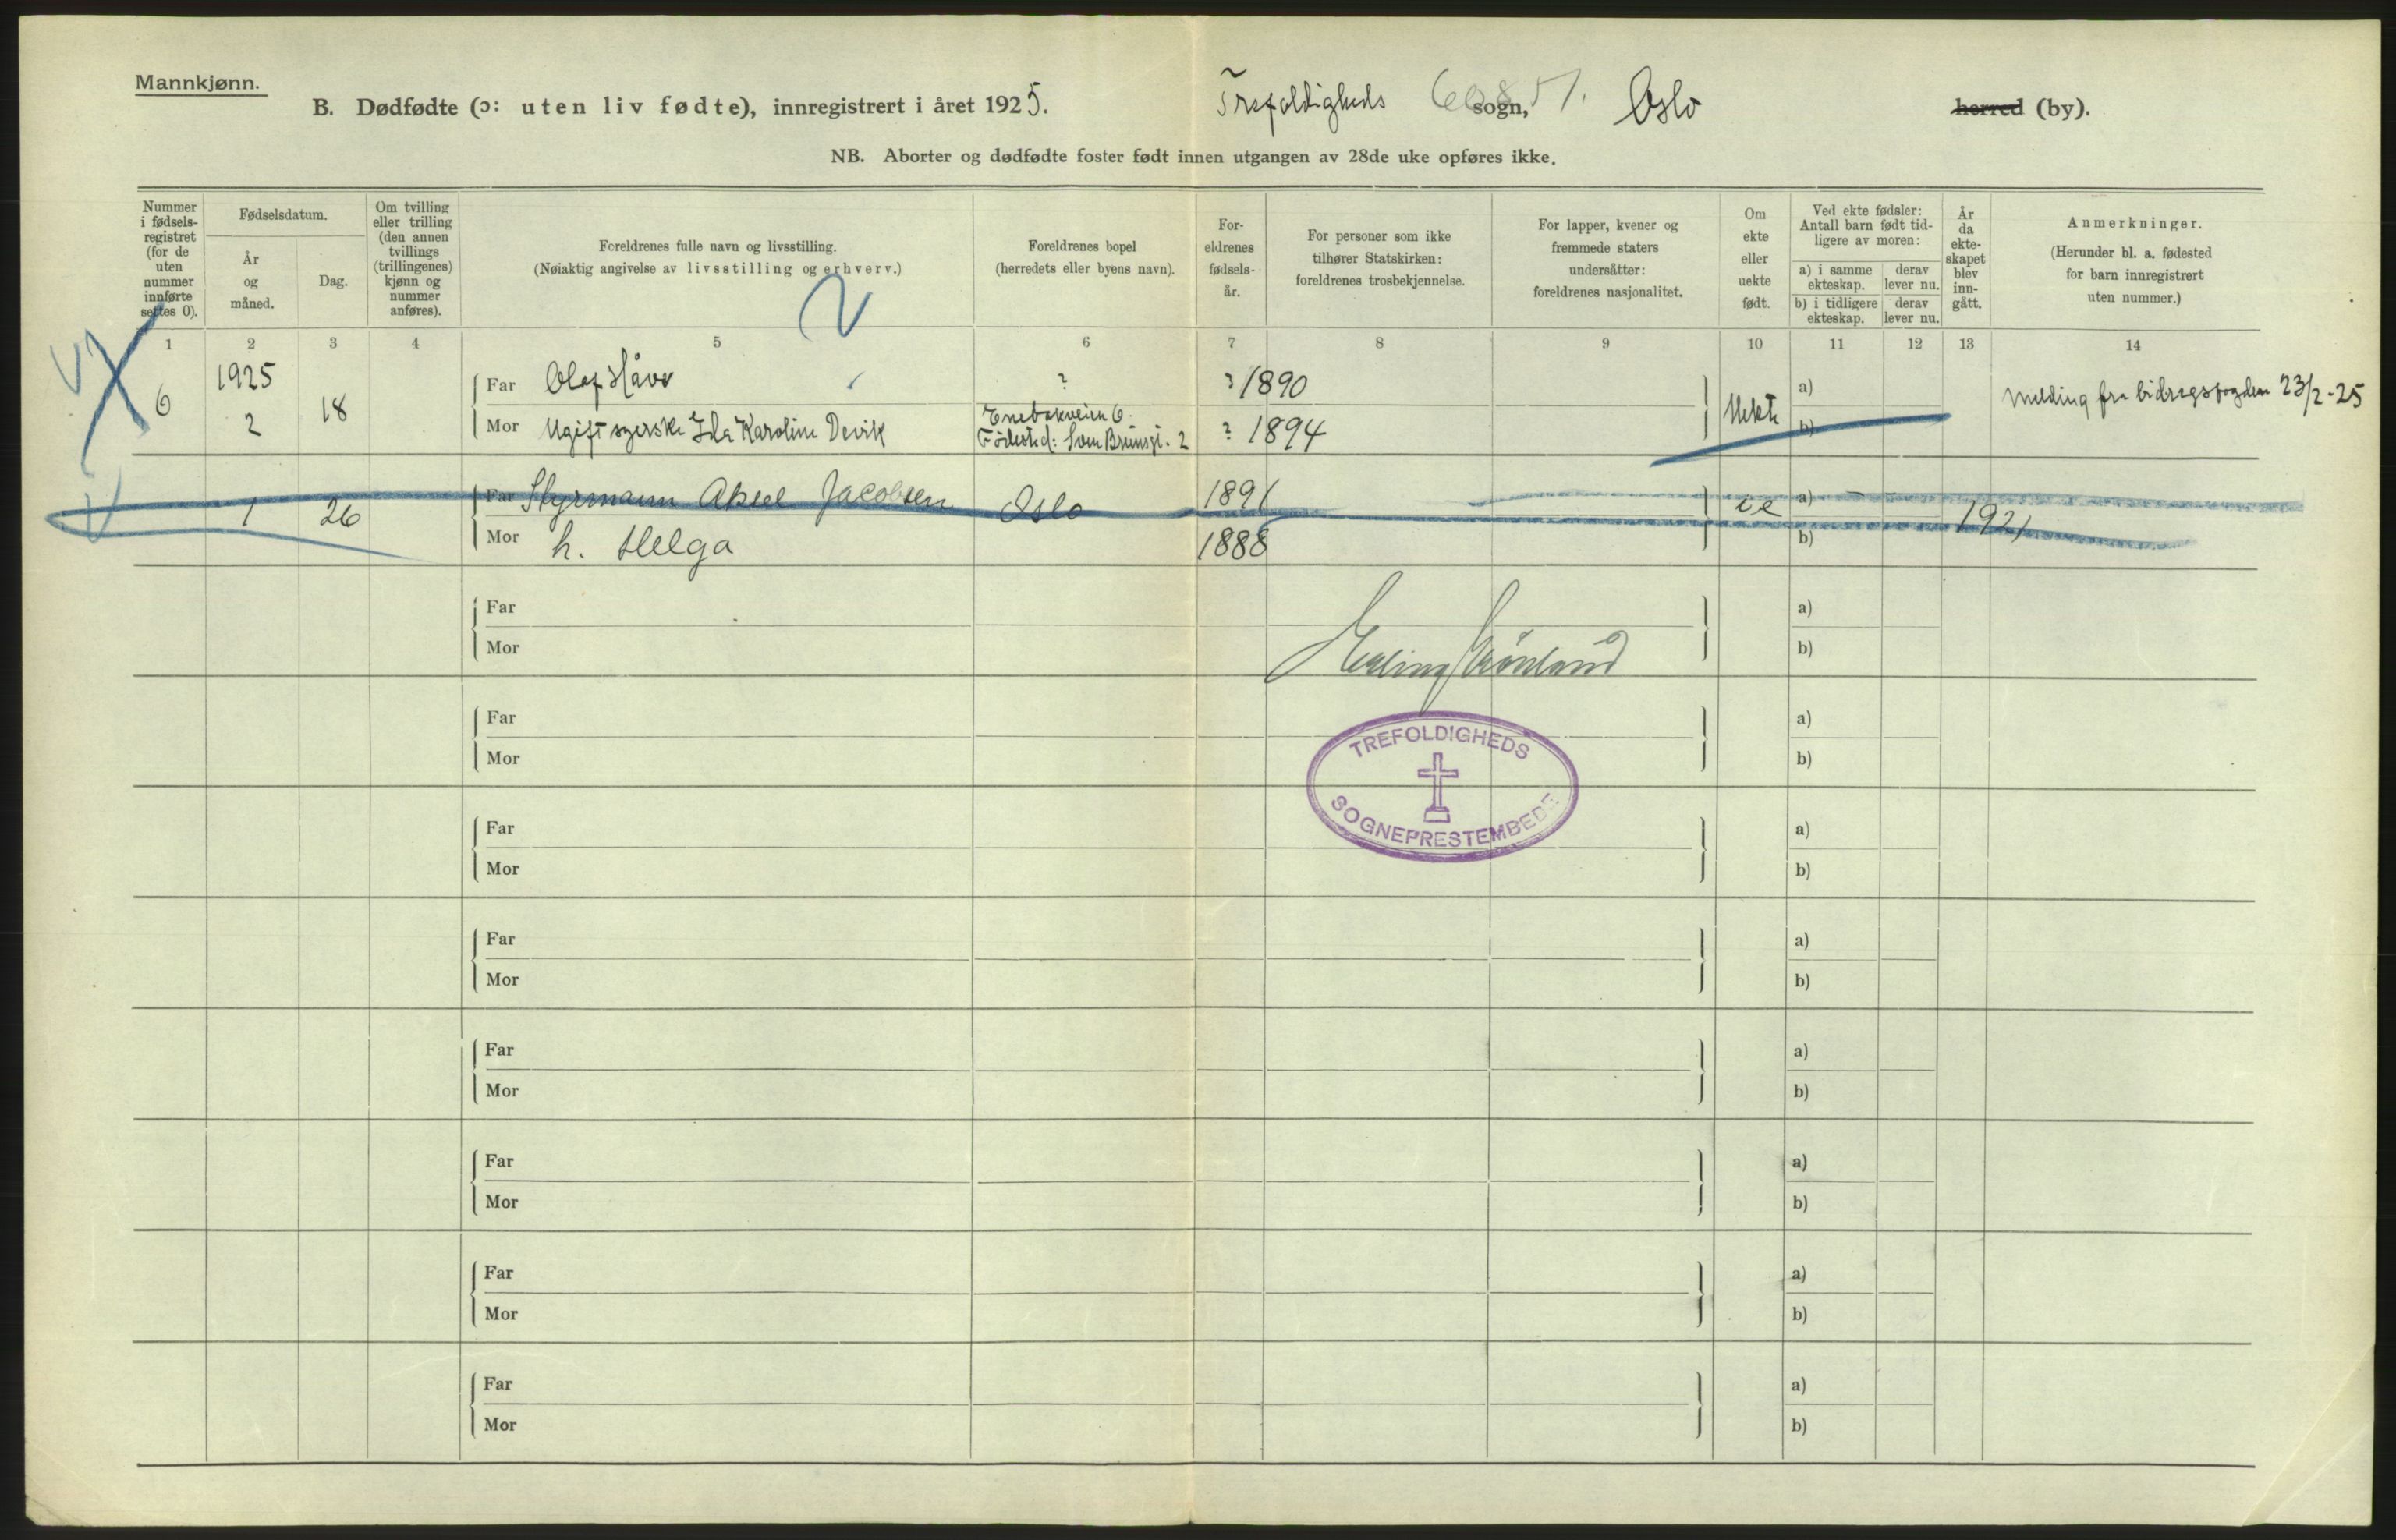 Mannkjønn.
B. Dødfødte (ɔ: uten liv fødte), innregistrert i året 1925.
Trefoldigheds sogn, Oslo herred (by).
NB. Aborter og dødfødte foster født innen utgangen av 28de uke opføres ikke.
Nummer
i fødsels-
registret
(for de
uten
nummer
innførte
settes 0).
Fødselsdatum.
År
og
måned.
Dag.
Om tvilling
eller trilling
(den annen
tvillings
(trillingenes)
kjønn og
nummer
anføres).
Foreldrenes fulle navn og livsstilling.
(Nøiaktig angivelse av livsstilling og erhverv.)
Foreldrenes bopel
(herredets eller byens navn).
For-
eldrenes
fødsels-
år.
For personer som ikke
tilhører Statskirken:
foreldrenes trosbekjennelse.
For lapper, kvener og
fremmede staters
undersåtter:
foreldrenes nasjonalitet.
Om
ekte
eller
uekte
født.
Ved ekte fødsler:
Antall barn født tid-
ligere av moren:
a) i samme
ekteskap.
derav
lever nu.
b) i tidligere
ekteskap.
derav
lever nu.
År
da
ekte-
skapet
blev
inn-
gått.
Anmerkninger.
(Herunder bl. a. fødested
for barn innregistrert
uten nummer.)
1 2 3 4 5 6 7 8 9 10 11 12 13 14
6 1925 2 18
Far Olaf Håve ? ? 1890
Mor Ugift syerske Ida Karoline Devik
Enebakveien 6.
Fødested: Sven Brunsgt. 2
? 1894
Uekte
a)
b)
Melding fra bidragsfogden 23/2-25
1 26
Far Styrmann Aksel Jacobsen Oslo 1891
Mor h. Helga 1888
a)
b)
1921
Far a)
Mor b)
Erling Grönland
Far a)
Mor b)
TREFOLDIGHEDS
SOGNEPRESTEMBEDE
Far a)
Mor b)
Far a)
Mor b)
Far a)
Mor b)
Far a)
Mor b)
Far a)
Mor b)
Far a)
Mor b)